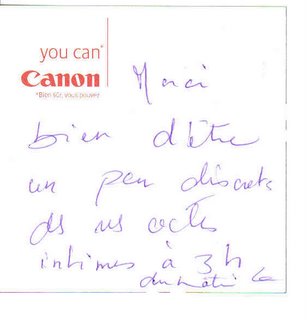 you can*
Canon
*Bien sûr, vous pouvez
Merci
bien d'être
un peu discrets
ds vs actes
intimes à 3h
du matin